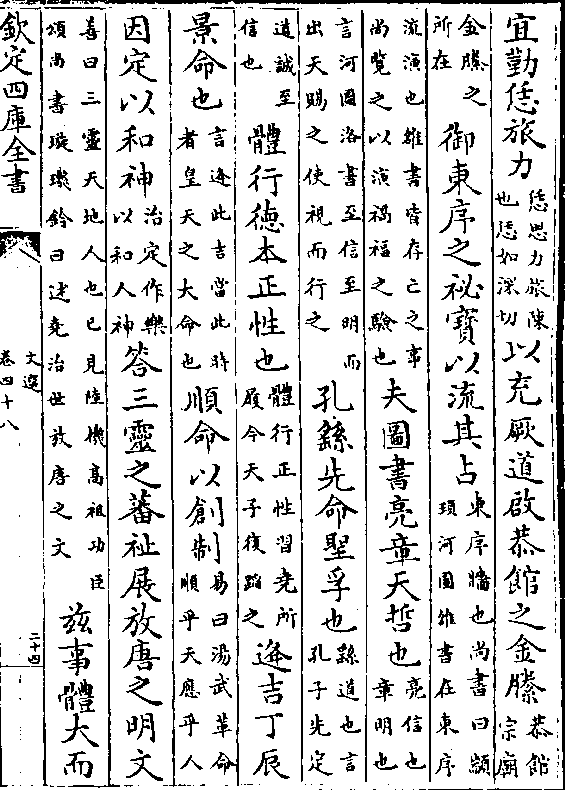 宜勤恁旅力恁思力旅陳也恁如深切以充厥道啟恭館之金縢恭館宗廟
金縢之所在御東序之祕寶以流其占東序牆也尚書曰顓頊河圖雒書在東序
流演也雒書皆存亡之事尚覽之以演禍福之驗也夫圖書亮章天哲也亮信也章明也
言河圖洛書至信至明而出天賜之使視而行之孔繇先命聖孚也繇道也言孔子先定
道誠至信也體行德本正性也體行正性習堯所履今天子復蹈之逢吉丁辰
景命也言逢此吉當此時者皇天之大命也順命以創制易曰湯武革命順乎天應乎人
因定以和神治定作樂以和人神答三靈之蕃祉展放唐之明文
善曰三靈天地人也已見陸機高祖功臣頌尚書璇璣鈐曰述堯治世放唐之文茲事體大而
欽定四庫全書
文選
卷四十八
二十四